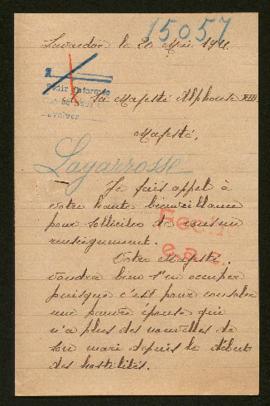 15057
le 20 Mai 191
à sa Majesté Alphonse XIII
Majesté,
Lagarrosse
Je fais appel à
votre haute bienveillance
pour solliciter de vous un
renseignement.
Votre Majesté
voudra bien s'en occuper
puisque c'est pour consoler
une pauvre épouse qui
n'a plus des nouvelles de
son mari depuis le début
des hostilités.